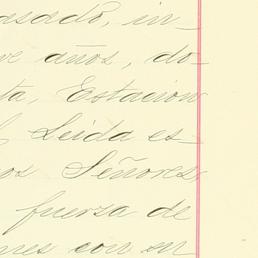 asado, in-
ve años, do-
ta, Estacion
Leida es-
os Señores
fuerza de
nes con su